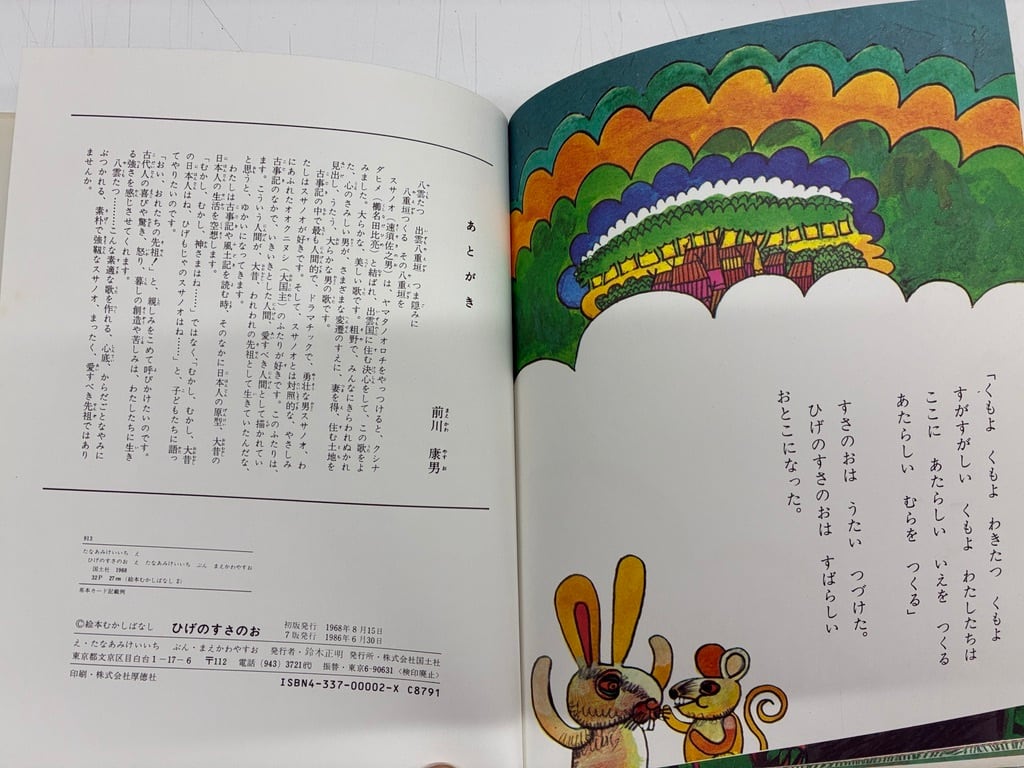 「くもよ くもよ わきたつ くもよ
すがすがしい くもよ わたしたちは
ここに あたらしい いえを つくる
あたらしい むらを つくる」
すさのおは うたい つづけた。
ひげのすさのおは すばらしい
おとこになった。
あとがき
前川 康男
八雲たつ 出雲八重垣 つま隠みに
八重垣つくる その八重垣を
スサノオ(速須佐之男)は、ヤマタノオロチをやっつけると、クシナ
ダヒメ(櫛名田比売)と結ばれ、出雲国に住む決心をして、この歌をよ
みました。大らかな、美しい歌です。粗野で、みんなにきらわれぬかれ
た、心のさみしい男が、さまざまな変遷のすえに、妻を得、住む土地を
見出し、うたう、大らかな男の歌です。
古事記の中で、最も人間的で、ドラマチックで、勇壮な男スサノオ、わ
たしはスサノオが好きです。そして、スサノオとは対照的な、やさしみ
にあふれたオオクニヌシ(大国主)のふたりが好きです。このふたりは、
古事記のなかで、いきいきとした人間、愛すべき人間として描かれてい
ます。こういう人間が、大昔、われわれの先祖として生きていたんだな、
と思うと、ゆかいになってきます。
わたしは古事記や風土記を読む時、そのなかに日本人の原型、大昔の
日本人の生活を空想します。
「むかし、むかし、神さまはね……」ではなく、「むかし、むかし、大昔
の日本人はね、ひげもじゃのスサノオはね……」と、子どもたちに語っ
てやりたいのです。
「おい、おれたちの先祖!」と、親しみをこめて呼びかけたいのです。
古代人の喜びや驚き、怒り、暮しの創造や苦しみは、わたしたちに生き
る強さを感じさせてくれます。
八雲たつ………こんな素適な歌を作れる、心底、からだごとなやみに
ぶつかれる、素朴で強靱なスサノオ、まったく、愛すべき先祖ではあり
ませんか。
913
たなあみけいいち え
ひげのすさのお え たなあみけいいち ぶん まえかわやすお
国土社 1968
32P 27cm(絵本むかしばなし 2)
基本カード記載例
©絵本むかしばなし ひげのすさのお 初版発行 1968年8月15日
7版発行 1986年6月30日
え・たなあみけいいち ぶん・まえかわやすお 発行者・鈴木正明 発行所・株式会社国土社
東京都文京区目白台1-17-6 〒112 電話(943)3721代 振替・東京6-90631〈検印廃止〉
印刷・株式会社厚徳社
ISBN4-337-00002-X C8791